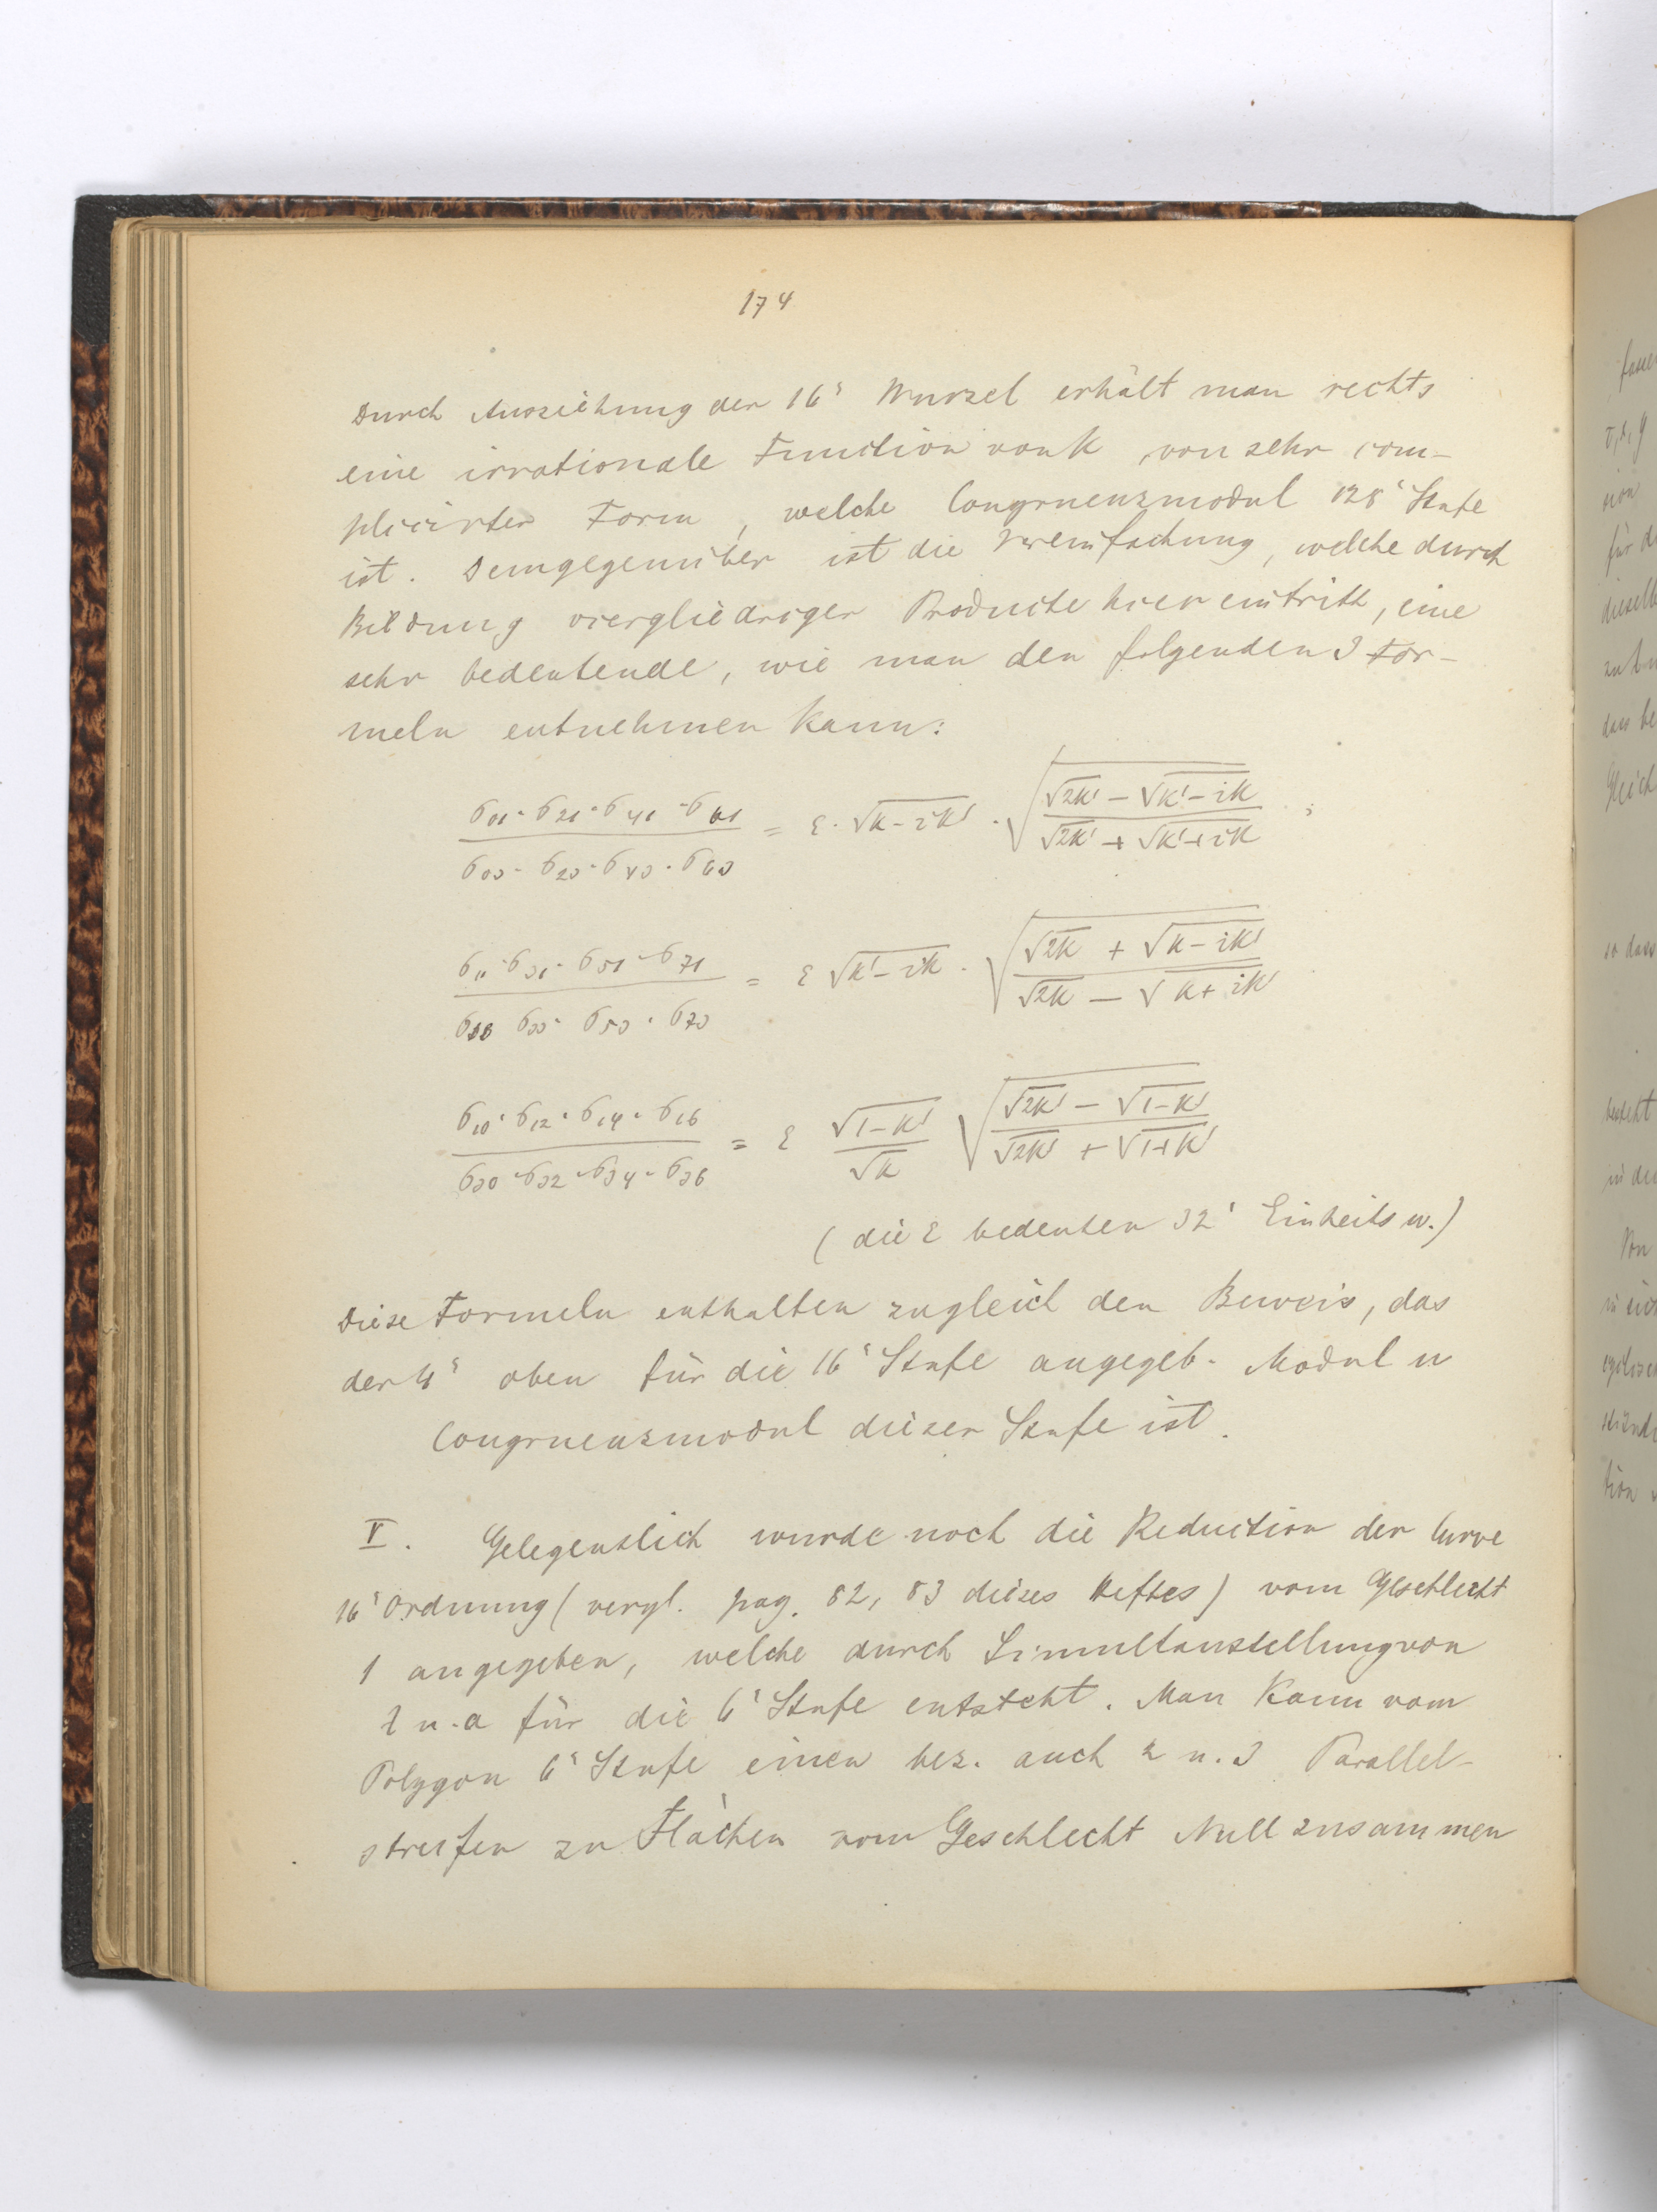 174
Durch Ausziehung der 16ᵗ Wurzel erhält man rechts
eine irrationale Function von k, von sehr com-
plicirter Form, welche Congruenzmodul 128ᵗ Stufe
ist. Demgegenüber ist die Vereinfachung, welche durch
Bildung viergliedriger Producte hier eintritt, eine
sehr bedeutende, wie man den folgenden 3 For-
meln entnehmen kann:
σ₀₁·σ₂₁·σ₄₁·σ₆₁ / σ₀₃·σ₂₃·σ₄₃·σ₆₃ = ε·√(k-ik')·√((√2k' - √(k'-ik)) / (√2k' + √(k'+ik))) ;
σ₁₁·σ₃₁·σ₅₁·σ₇₁ / σ₁₃ σ₃₃·σ₅₃·σ₇₃ = ε √(k'-ik)·√((√2k + √(k-ik')) / (√2k - √(k+ik')))
σ₁₀·σ₁₂·σ₁₄·σ₁₆ / σ₃₀·σ₃₂·σ₃₄·σ₃₆ = ε √(1-k') / √k √((√2k' - √(1-k')) / (√2k' + √(1+k')))
(die ε bedeuten 32ᵗ Einheitsw.)
Diese Formeln enthalten zugleich den Beweis, das
der oben für die 16ᵗ Stufe angegeb. Modul u
Congruenzmodul dieser Stufe ist.
V. Gelegentlich wurde noch die Reduction der Curve
16ᵗ Ordnung (vergl. pag. 82, 83 dieses Heftes) vom Geschlecht
1 angegeben, welche durch Simultanstellung von
u. a für die 6ᵗ Stufe entsteht. Man kann vom
Polygon 6ᵗ Stufe einen bez. auch 2 u. 3 Parallel-
streifen zu Flächen vom Geschlecht Null zusammen